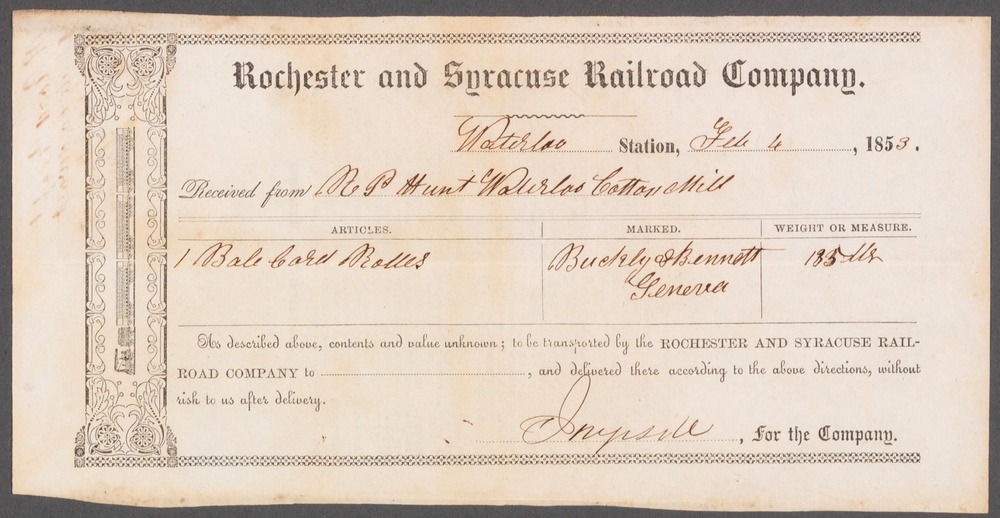 Rochester and Syracuse Railroad Company.
Waterloo Station, Feb 4, 1853.
Received from R P Hunt Waterloo Cotton Mill
ARTICLES. MARKED. WEIGHT OR MEASURE.
1 Bale Card Rolls Buckly & Bennett 185 lbs
Geneva
As described above, contents and value unknown; to be transported by the ROCHESTER AND SYRACUSE RAIL-
ROAD COMPANY to , and delivered there according to the above directions, without
risk to us after delivery.
, For the Company.